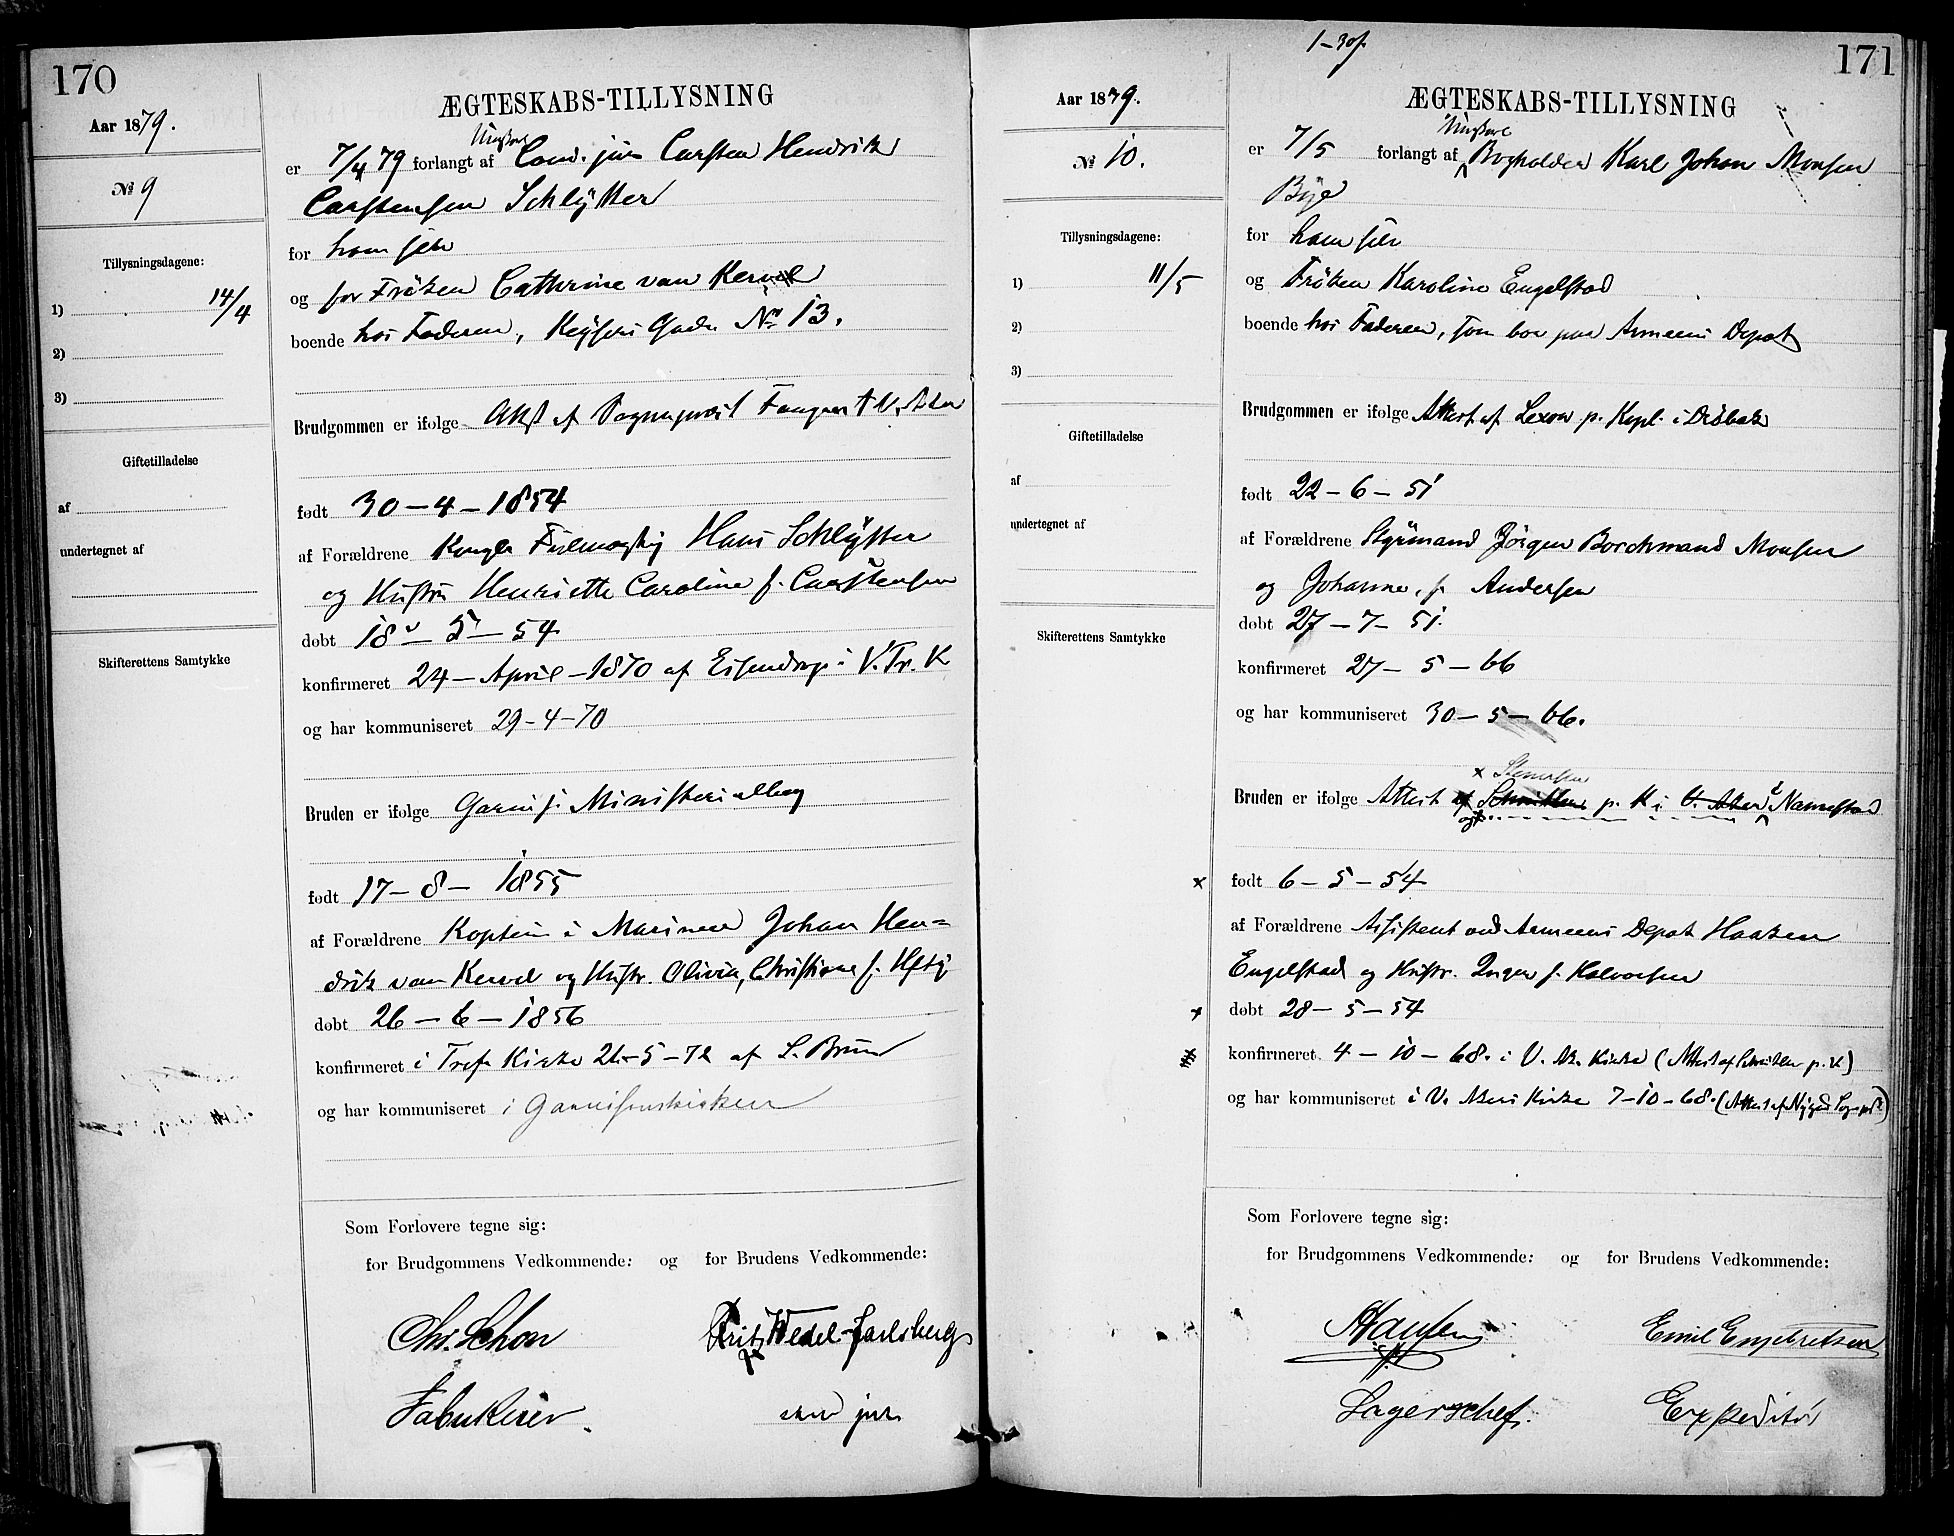 170
Aar 1879.
№ 9
Tillysningsdagene:
1) 14/4
2)
3)
Giftetilladelse
af
undertegnet af
Skifterettens Samtykke
ÆGTESKABS-TILLYSNING
Ungkarl
er 7/4 79 forlangt af Cand. jur. Carsten Hendrik
Carstensen Schlytter
for ham selv
og for Frøken Cathrine van Kervel
boende hos Faderen, Keysers Gade No 13.
Brudgommen er ifølge Attest af Sogneprest V. Aker
født 30-4-1854
af Forældrene Fuldmægtig Hans Schlytter
og Hustru Henriette Caroline f. Carstensen
døbt 18-5-54
konfirmeret 24-April-1870 af i V. Fr. K
og har kommuniseret 29-4-70
Bruden er ifølge Garnis. Ministerialbog
født 17-8-1855
af Forældrene Koptein i Marinen Johan Hen=
drik van Kervel og Hustr. Olivia, Christiane f.
døbt 26-6-1856
konfirmeret i Tref. Kirke 26-5-72 af S. Bruun
og har kommuniseret i Garnisonskirken
Som Forlovere tegne sig:
for Brudgommens Vedkommende: og for Brudens Vedkommende:
Chr. Schou Fritz Wedel-Jarlsberg
Fabrikeier cand jur
1-30 f.
171
Aar 1879.
№ 10.
Tillysningsdagene:
1) 11/5
2)
3)
Giftetilladelse
af
undertegnet af
Skifterettens Samtykke
ÆGTESKABS-TILLYSNING
Ungkarl
er 7/5 forlangt af Bogholder Karl Johan Monsen
Bye
for ham selv
og Frøken Karoline Engelstad
boende hos Faderen, som bor paa Armeens Depot
Brudgommen er ifølge Attest af Lexow p. Kapl. i Drøbak
født 22-6-51
af Forældrene Styrmand Jørgen Borchmand Monsen
og Johanne, f. Andersen
døbt 27-7-51.
konfirmeret 27-5-66
og har kommuniseret 30-5-66.
x Stenersen
Bruden er ifølge Attest af Schnitler p. K i V. Aker i Nannestad
og
x født 6-5-54
af Forældrene Assistent ved Armeens Depot Haaken
Engelstad og Hustr. Inger f. Halvorsen
x døbt 28-5-54
konfirmeret 4-10-68. i V. Ak. Kirke (Attest af Schnitler p. K)
og har kommuniseret i V. Akers Kirke 7-10-68. (Attest af Sognepr.)
Som Forlovere tegne sig:
for Brudgommens Vedkommende: og for Brudens Vedkommende:
Emil Engebretsen
Lagerschef. Expeditør